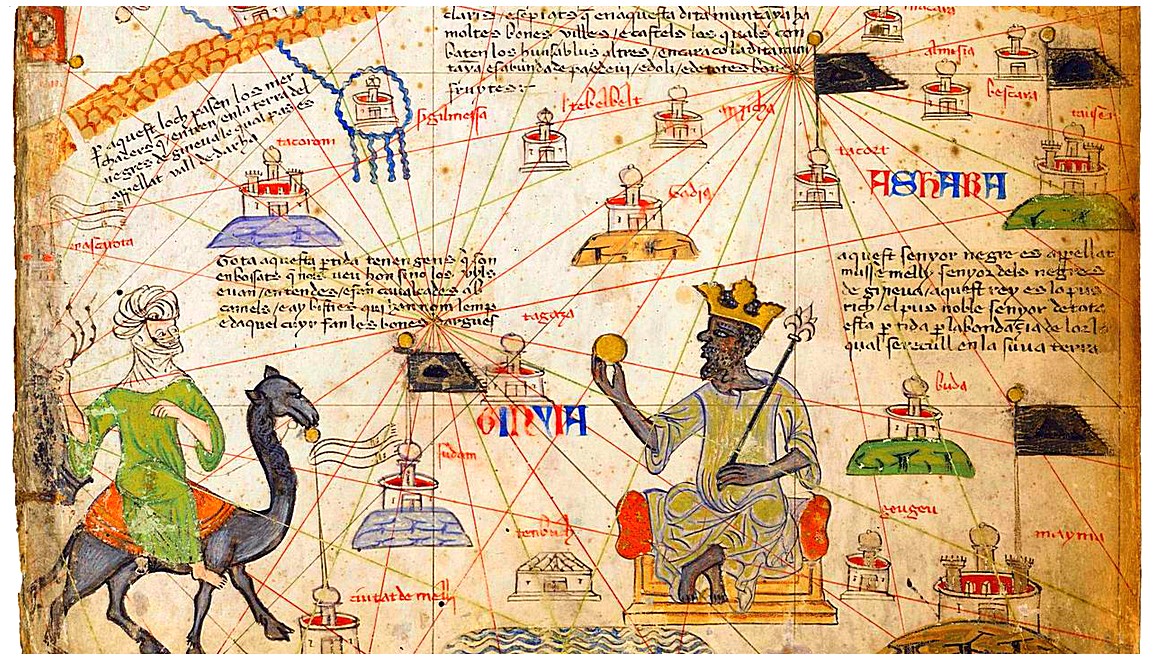 moltes bones villes / e castels los quals con
baten los huns ab los altres / encara co la dita mun
taya es abunda de pa e de vi / e d oli / e de totes bones
fruytes
p aquest loch pasen los mer
chaders q entren en la terra del
negres de gineua lo qual pas es
appellat vall de darha
sigilmessa
tebelbelt
almisia
bescara
tacort
tacoroni
ASHARA
Tota aquesta ptida tenen gens q son
enbossats q nols veu hom sino los uyls
e van / en tendes / e fan caualcades ab
camels / e ay bisties qui han nom lemp
e daquel cuyr fan les bones dargues
aquest senyor negre es appellat
musse melly senyor dels negres
de gineua / aquest rey es lo pus
rich / el pus noble senyor de tota
esta ptida p labondaçia de lor lo
qual se recull en la suua terra
tagaza
GINYIA
buda
sudam
tenbuch
geugeu
mayma
ciutat de melly